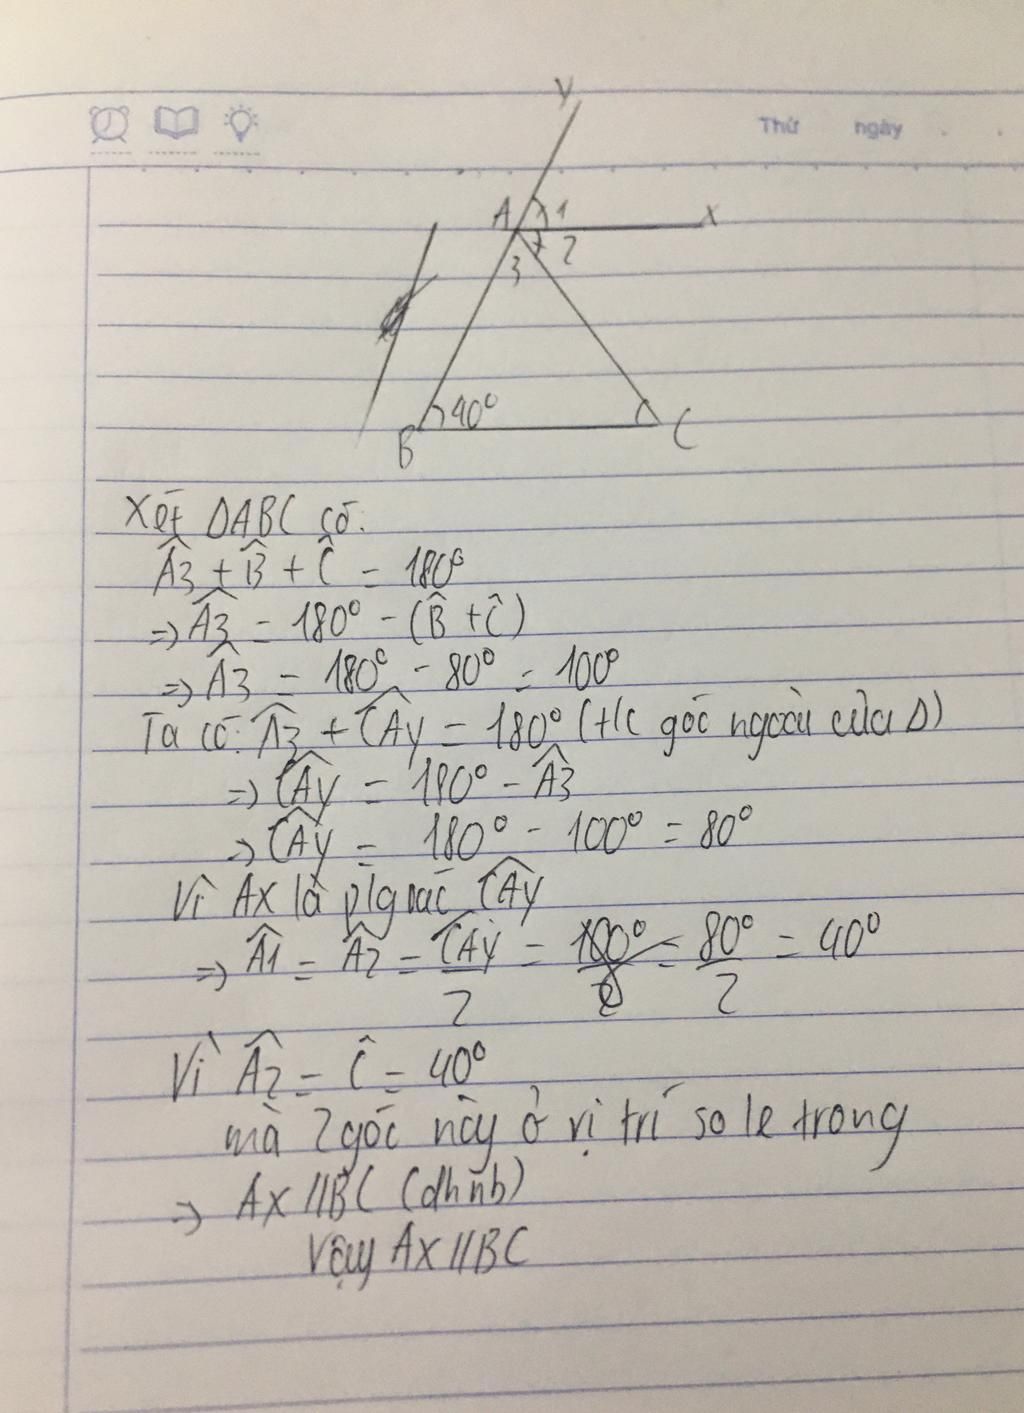 Thứ ngày . .
y
A 1 x
2
3
40°
B C
Xét ΔABC có:
Â3 + B̂ + Ĉ = 180°
=> Â3 = 180° - (B̂ + Ĉ)
=> Â3 = 180° - 80° = 100°
Ta có: Â3 + CÂy = 180° (t/c góc ngoài của Δ)
=> CÂy = 180° - Â3
=> CÂy = 180° - 100° = 80°
Vì Ax là p/g của CÂy
=> Â1 = Â2 = CÂy/2 = 100°/2 = 80°/2 = 40°
Vì Â2 = Ĉ = 40°
mà 2 góc này ở vị trí so le trong
=> Ax // BC (dhnb)
Vậy Ax // BC